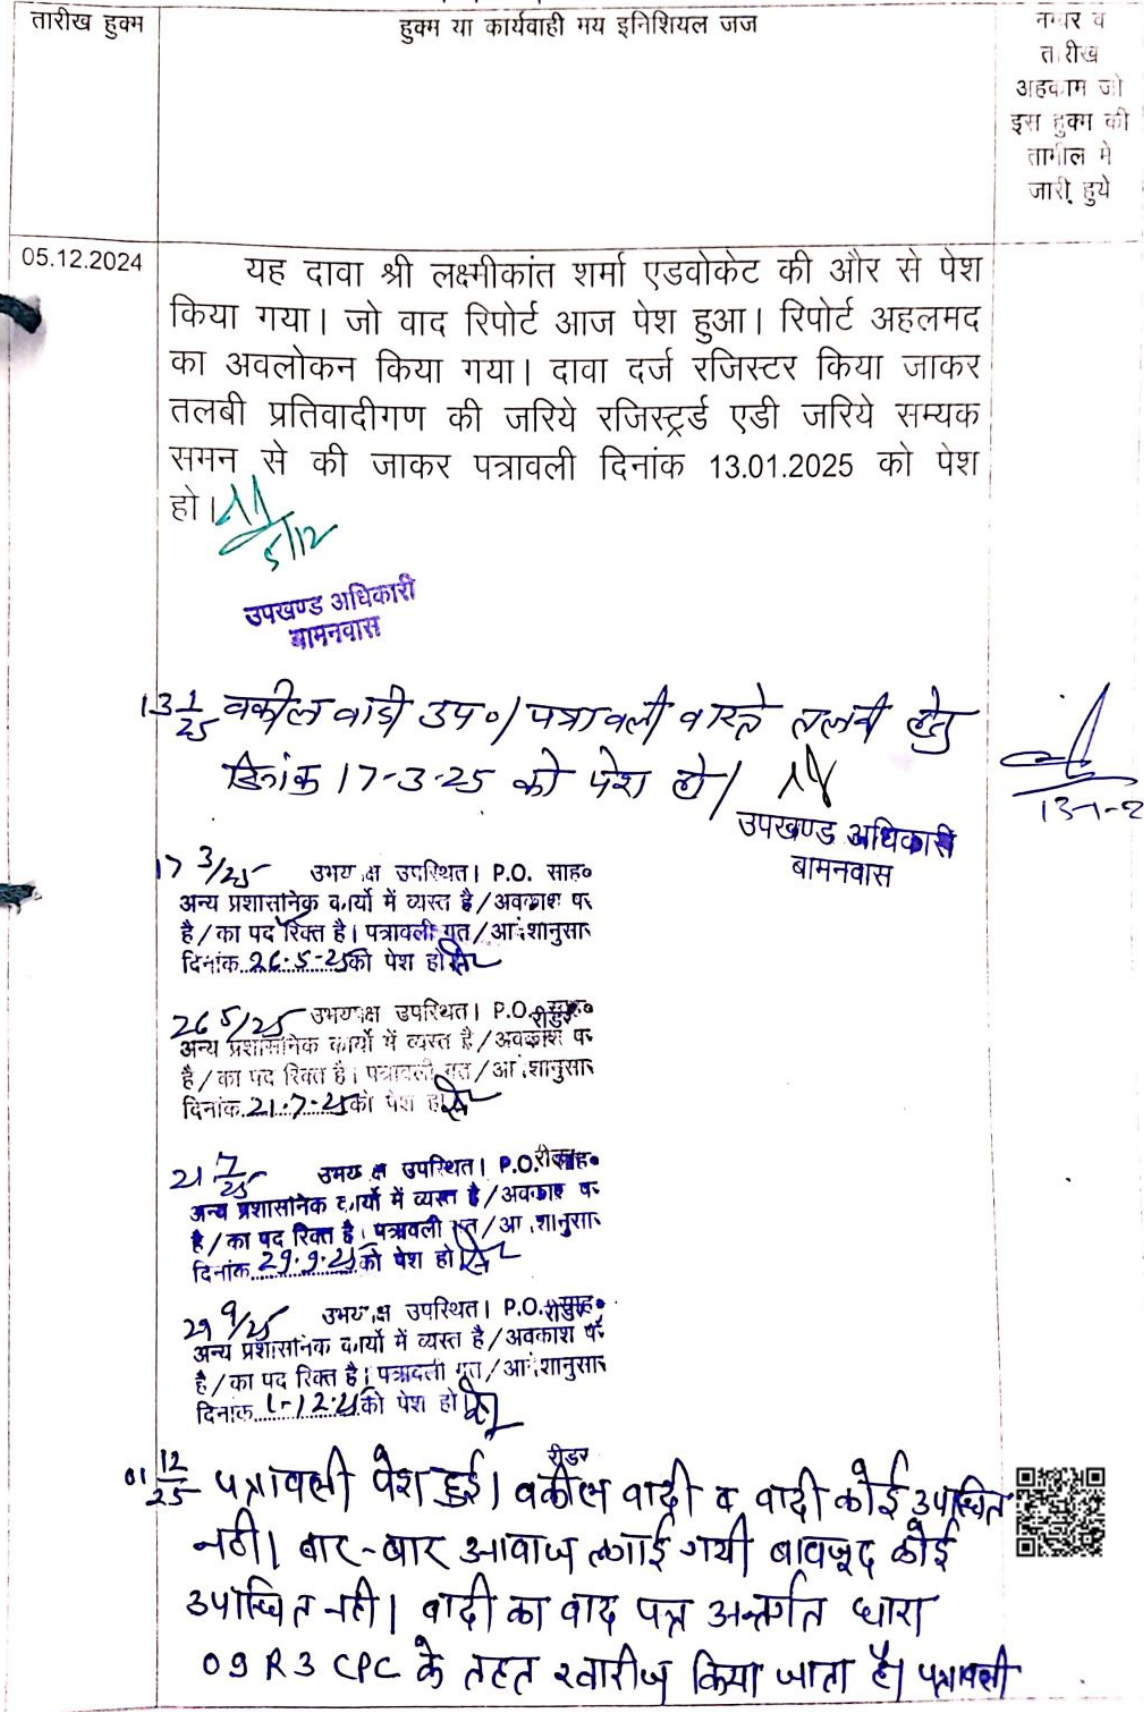 तारीख हुक्म
हुक्म या कार्यवाही मय इनिशियल जज
नम्बर व
तारीख
अहकाम जो
इस हुक्म की
तामील मे
जारी हुये
05.12.2024
यह दावा श्री लक्ष्मीकांत शर्मा एडवोकेट की और से पेश
किया गया। जो वाद रिपोर्ट आज पेश हुआ। रिपोर्ट अहलमद
का अवलोकन किया गया। दावा दर्ज रजिस्टर किया जाकर
तलबी प्रतिवादीगण की जरिये रजिस्ट्रर्ड एडी जरिये सम्यक
समन से की जाकर पत्रावली दिनांक 13.01.2025 को पेश
हो।
5/12
उपखण्ड अधिकारी
बामनवास
13 1/25 वकील वादी उप०। पत्रावली वास्ते तलबी हेतु
दिनांक 17-3-25 को पेश हो।
13-1-2
उपखण्ड अधिकारी
बामनवास
17 3/25 उभय क्ष उपस्थित। P.O. साह०
अन्य प्रशासनिक कार्यो में व्यस्त है/अवकाश पर
है/का पद रिक्त है। पत्रावली गत/आ शानुसार
दिनांक 26.5-25 को पेश हो
रीडर
26 5/25 उभय क्ष उपस्थित। P.O. साह०
अन्य प्रशासनिक कार्यो में व्यस्त है/अवकाश पर
है/का पद रिक्त है। पत्रावली गत/आ शानुसार
दिनांक 21.7.25 को पेश हो
रीडर
21 7/25 उभय क्ष उपस्थित। P.O. साह०
अन्य प्रशासनिक कार्यो में व्यस्त है/अवकाश पर
है/का पद रिक्त है। पत्रावली गत/आ शानुसार
दिनांक 29.9.25 को पेश हो
रीडर
29 9/25 उभय क्ष उपस्थित। P.O. साह०
अन्य प्रशासनिक कार्यो में व्यस्त है/अवकाश पर
है/का पद रिक्त है। पत्रावली गत/आ शानुसार
दिनांक 1-12.25 को पेश हो
रीडर
01 12/25 पत्रावली पेश हुई। वकील वादी व वादी कोई उपस्थित
नही। बार-बार आवाज लगाई गयी बावजूद कोई
उपस्थित नही। वादी का वाद पत्र अन्तर्गत धारा
09 R 3 CPC के तहत खारीज किया जाता है। पत्रावली